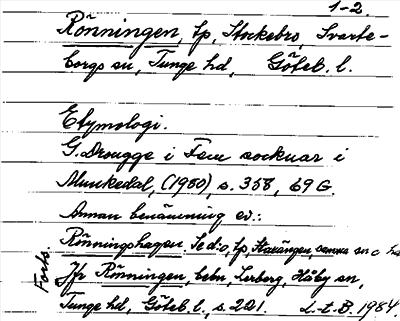 1-2.
Rönningen, tp, Stockebro, Svarte-
borgs sn, Tunge hd, Göteb. l.
Etymologi.
G. Drougge i Fem socknar i
Munkedal, (1980), s. 358, 69 G.
Annan benämning ev.:
Rönningshagen. Se d:o, tp, samma sn o hd
Forts.
Jfr Rönningen, bebn, Lerberg, Håby sn,
Tunge hd, Göteb. l., s. 221. L-t. B. 1984.